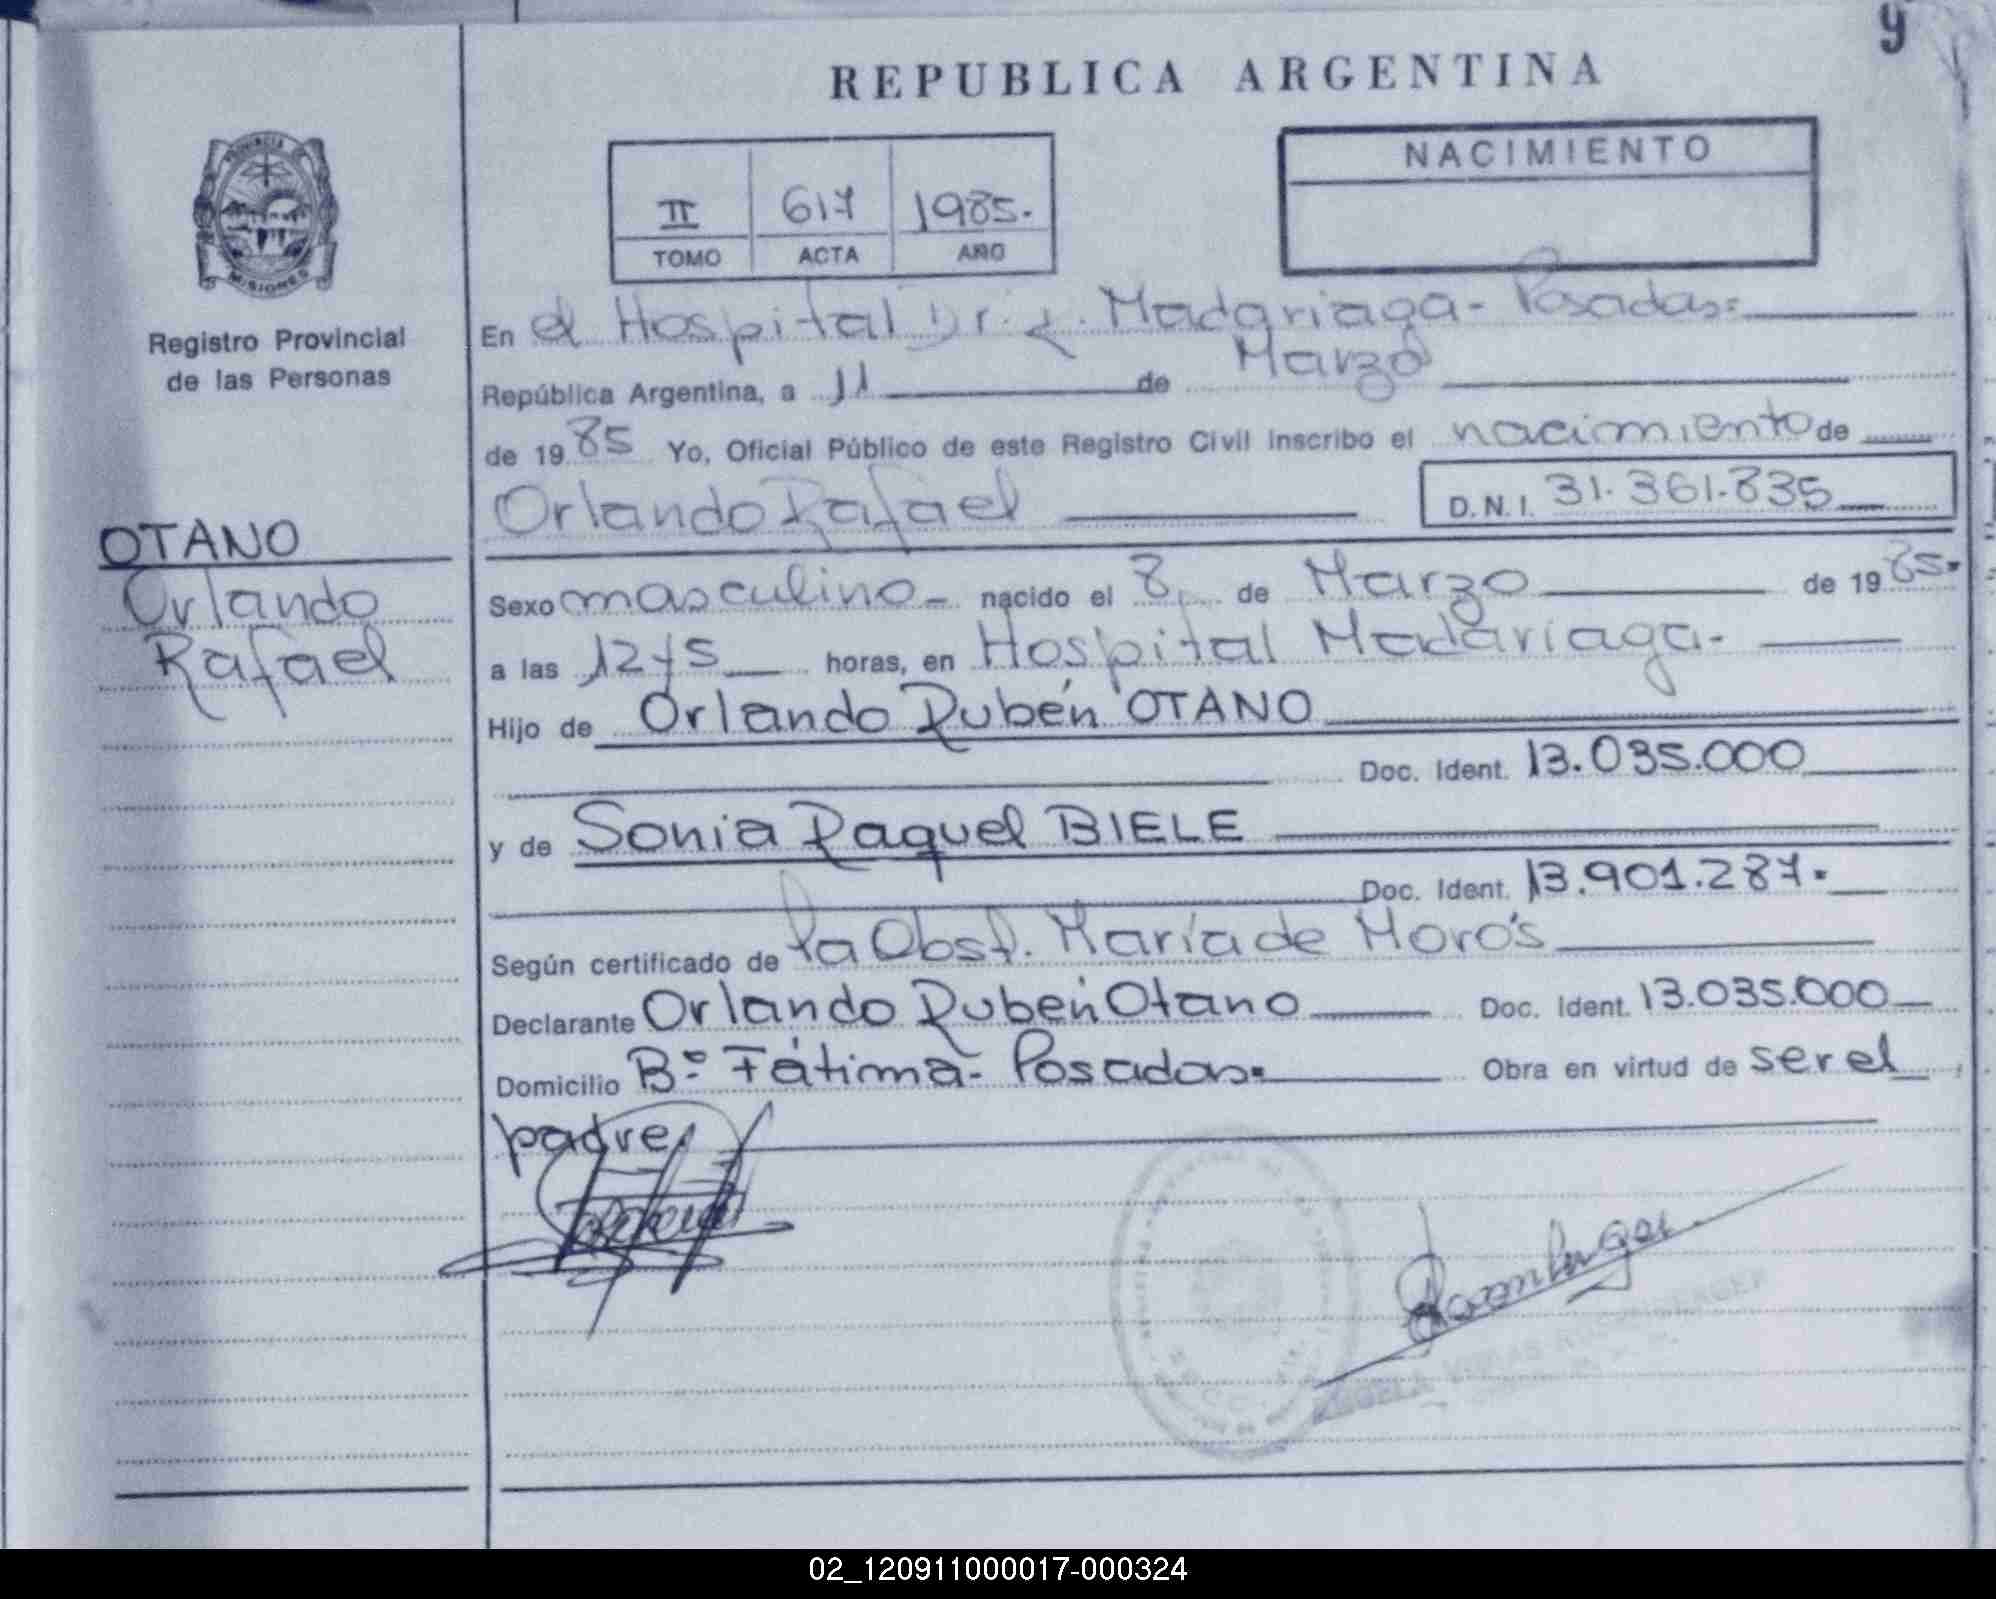 9
REPUBLICA ARGENTINA
PROVINCIA DE
MISIONES
Registro Provincial
de las Personas
II 617 1985.
TOMO ACTA AÑO
NACIMIENTO
En el Hospital Dr. R. Madariaga - Posadas.
República Argentina, a 11 de Marzo
de 1985 Yo, Oficial Público de este Registro Civil inscribo el nacimiento de
Orlando Rafael D.N.I. 31.361.835
OTANO
Orlando
Rafael
Sexo masculino - nacido el 8 de Marzo de 1985.
a las 12 y 5 horas, en Hospital Madariaga -
Hijo de Orlando Rubén OTANO
Doc. Ident. 13.035.000
y de Sonia Raquel BIELE
Doc. Ident. 13.901.287.
Según certificado de la Obst. María de Moro's
Declarante Orlando Rubén Otano Doc. Ident. 13.035.000
Domicilio B.º Fátima - Posadas. Obra en virtud de ser el
padre
02_120911000017-000324